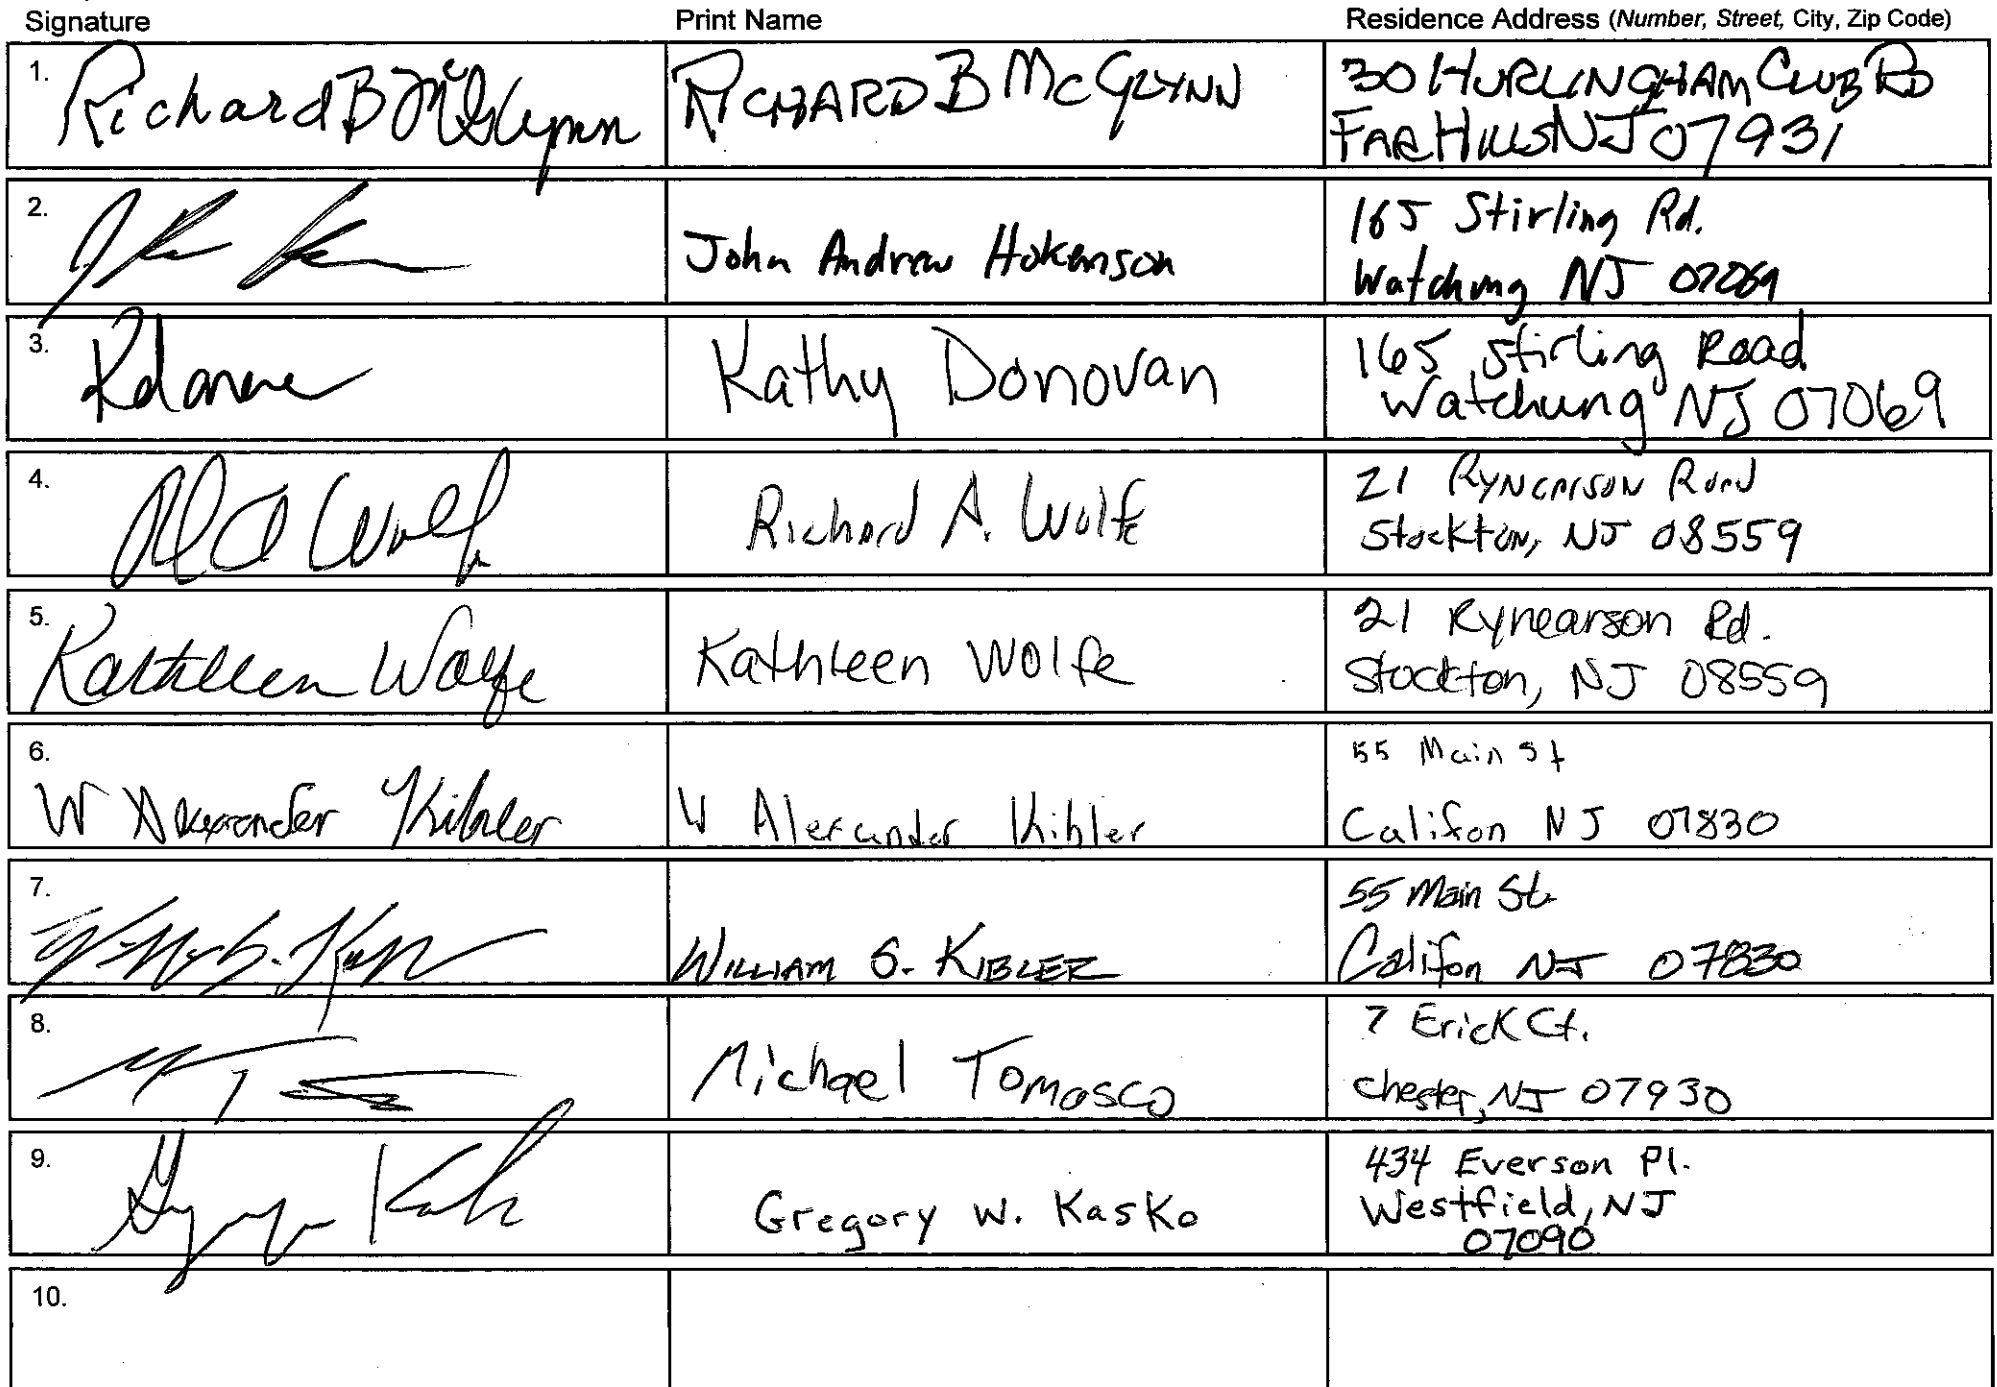 Signature Print Name Residence Address (Number, Street, City, Zip Code)
1. Richard B McGlynn RICHARD B McGLYNN 30 HURLINGHAM CLUB RD
FAR HILLS NJ 07931
2. John Andrew Hokenson 165 Stirling Rd.
Watchung NJ 07069
3. Kathy Donovan 165 Stirling Road
Watchung NJ 07069
4. RA Wolfe Richard A. Wolfe 21 Rynearson Road
Stockton, NJ 08559
5. Kathleen Wolfe Kathleen Wolfe 21 Rynearson Rd.
Stockton, NJ 08559
6. W Alexander Kibler W Alexander Kibler 55 Main St
Califon NJ 07830
7. WILLIAM S. KIBLER 55 Main St.
Califon NJ 07830
8. Michael Tomasco 7 Erick Ct.
Chester, NJ 07930
9. Gregory W. Kasko 434 Everson Pl.
Westfield, NJ
07090
10.